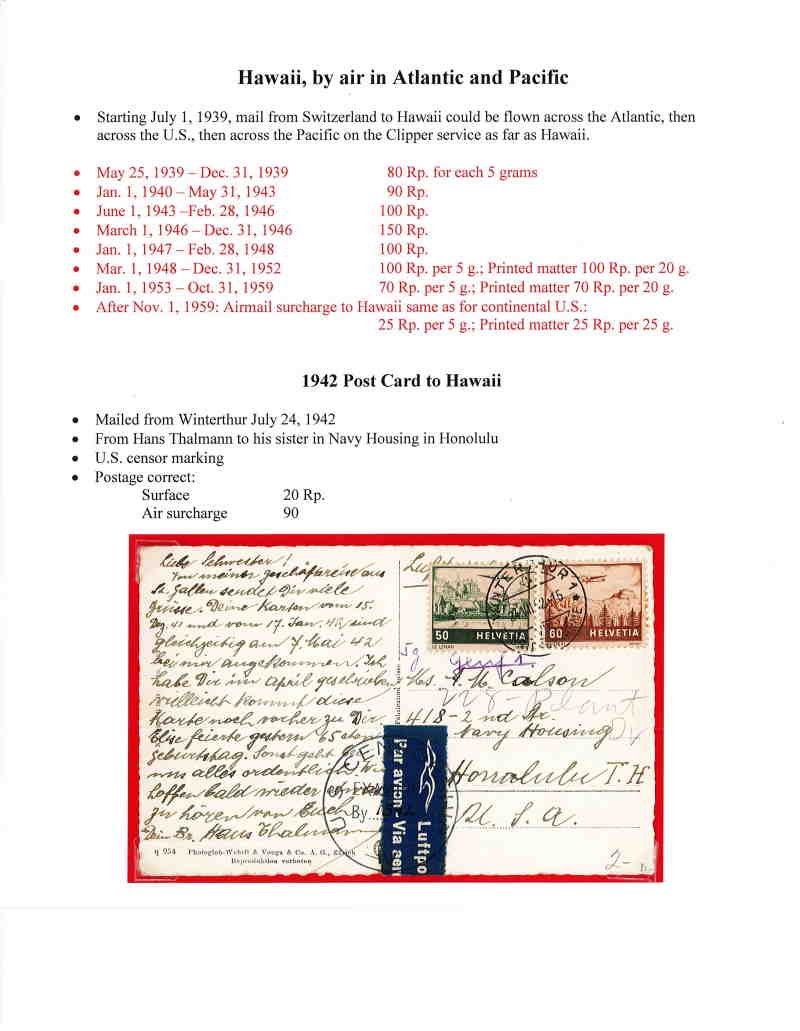 Hawaii, by air in Atlantic and Pacific
• Starting July 1, 1939, mail from Switzerland to Hawaii could be flown across the Atlantic, then
across the U.S., then across the Pacific on the Clipper service as far as Hawaii.
• May 25, 1939 – Dec. 31, 1939 80 Rp. for each 5 grams
• Jan. 1, 1940 – May 31, 1943 90 Rp.
• June 1, 1943 –Feb. 28, 1946 100 Rp.
• March 1, 1946 – Dec. 31, 1946 150 Rp.
• Jan. 1, 1947 – Feb. 28, 1948 100 Rp.
• Mar. 1, 1948 – Dec. 31, 1952 100 Rp. per 5 g.; Printed matter 100 Rp. per 20 g.
• Jan. 1, 1953 – Oct. 31, 1959 70 Rp. per 5 g.; Printed matter 70 Rp. per 20 g.
• After Nov. 1, 1959: Airmail surcharge to Hawaii same as for continental U.S.:
25 Rp. per 5 g.; Printed matter 25 Rp. per 25 g.
1942 Post Card to Hawaii
• Mailed from Winterthur July 24, 1942
• From Hans Thalmann to his sister in Navy Housing in Honolulu
• U.S. censor marking
• Postage correct:
Surface 20 Rp.
Air surcharge 90
Liebe Schwester!
Von meiner Geschäftsreise aus
St. Gallen sendet Dir viele
Grüsse. Deine Karten vom 15.
Dez. 41 und vom 17. Jan. 42 sind
gleichzeitig am 7. Mai 42
bei mir angekommen. Ich
habe Dir im April geschrieben
vielleicht kommt diese
Karte noch vorher zu Dir.
Elise feierte gestern 65sten
Geburtstag. Sonst geht
uns alles ordentlich. Wir
hoffen bald wieder etwas
zu hören von Euch
Dein Br. Hans Thalmann
q 954 Photoglob-Wehrli & Vouga & Co. A. G., Zürich
Reproduktion verboten
50 HELVETIA
60 HELVETIA
WINTERTHUR 1
Genf 1.
Mrs. Calson
228-Plant
418-2nd Str.
Navy Housing
Honolulu T.H
U. S. A.
Par avion - Via aer
Luftpo
U.S. CEN
EX
By
2-